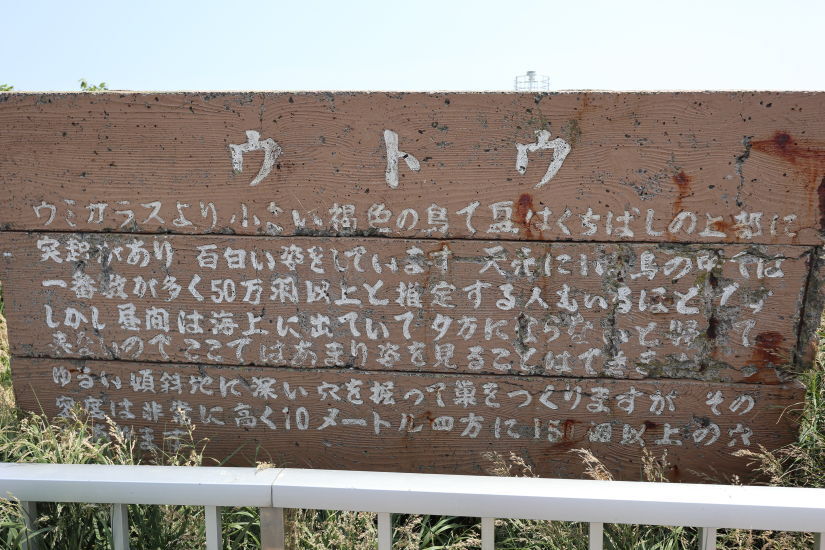 ウトウ
ウミガラスより小さい褐色の鳥で夏はくちばしの上部に
突起があり 面白い姿をしています 天売にいる鳥の中では
一番数が多く50万羽以上と推定する人もいるほどです
しかし昼間は海上に出ていて夕方にならないと帰って
来ないのでここではあまり姿を見ることはできません
ゆるい傾斜地に深い穴を掘って巣をつくりますが その
密度は非常に高く10メートル四方に150個以上の穴
ます